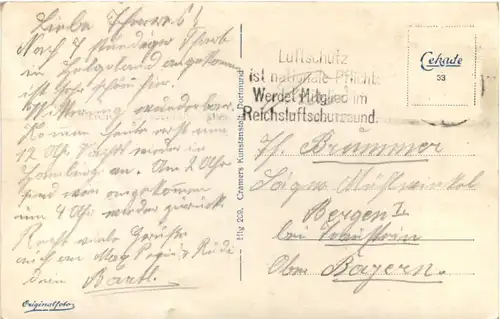 Liebe
Nach 7 stündiger Fahrt
in Helgoland angekommen
ist sehr schön hier.
Witterung wunderbar.
Kommen heute erst um
12 Uhr Nachts wieder in
Hamburg an. Um 2 Uhr
sind wir angekommen
um 4 Uhr wieder zurück.
Recht viele Grüße
auch an
Originalfoto
Hlg 209. Cramers Kunstanstalt, Dortmund
Luftschutz
ist nationale Pflicht
Werdet Mitglied im
Reichsluftschutzbund.
Cekade
33
Brummer
Sägew. Mühlwinkel
Bergen I
bei Traunstein
Ober Bayern.